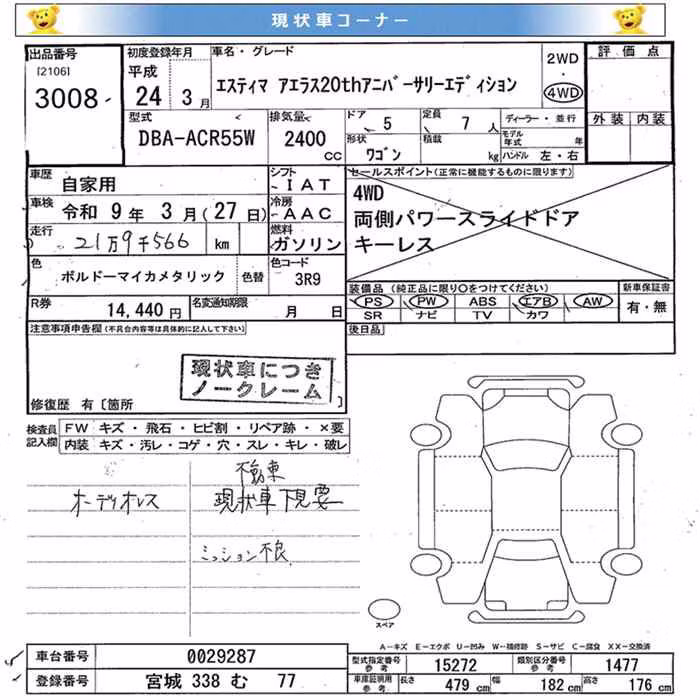 現状車コーナー
出品番号 初度登録年月 車名・グレード 2WD 評価点
[2106] 平成 ・
3008 24 3月 エスティマ アエラス20thアニバーサリーエディション 4WD
型式 排気量 ドア 5 定員 7 人 ディーラー・並行 外装 内装
DBA-ACR55W 2400 CC 形状 ワゴン 積載 kg モデル年式 年
ハンドル 左・右
車歴 自家用 シフト IAT セールスポイント(正常に機能するものに限ります)
車検 令和 9年 3月(27日) 冷房 AAC 4WD
走行 21万9千566 km 燃料 ガソリン 両側パワースライドドア
キーレス
色 ボルドーマイカメタリック 色替 色コード 3R9
装備品(純正品に限り○をつけてください) 新車保証書
PS PW ABS エアB AW 有・無
SR ナビ TV カワ
R券 14,440円 名変通知期限 月 日
後日品
注意事項申告欄(不具合内容等は具体的に記入して下さい)
現状車につき
ノークレーム
修復歴 有〔箇所
検査員記入欄 FW キズ・飛石・ヒビ割・リペア跡・×要
内装 キズ・汚レ・コゲ・穴・スレ・キレ・破レ
不動車
オーディオレス 現状車下見要
ミッション不良
スペア
A-キズ E-エクボ U-凹み W-補修跡 S-サビ C-腐食 XX-交換済
車台番号 0029287 型式指定番号 参考 15272 類別区分番号 参考 1477
登録番号 宮城 338 む 77 車庫証明用 参考 長さ 479 cm 幅 182 cm 高さ 176 cm